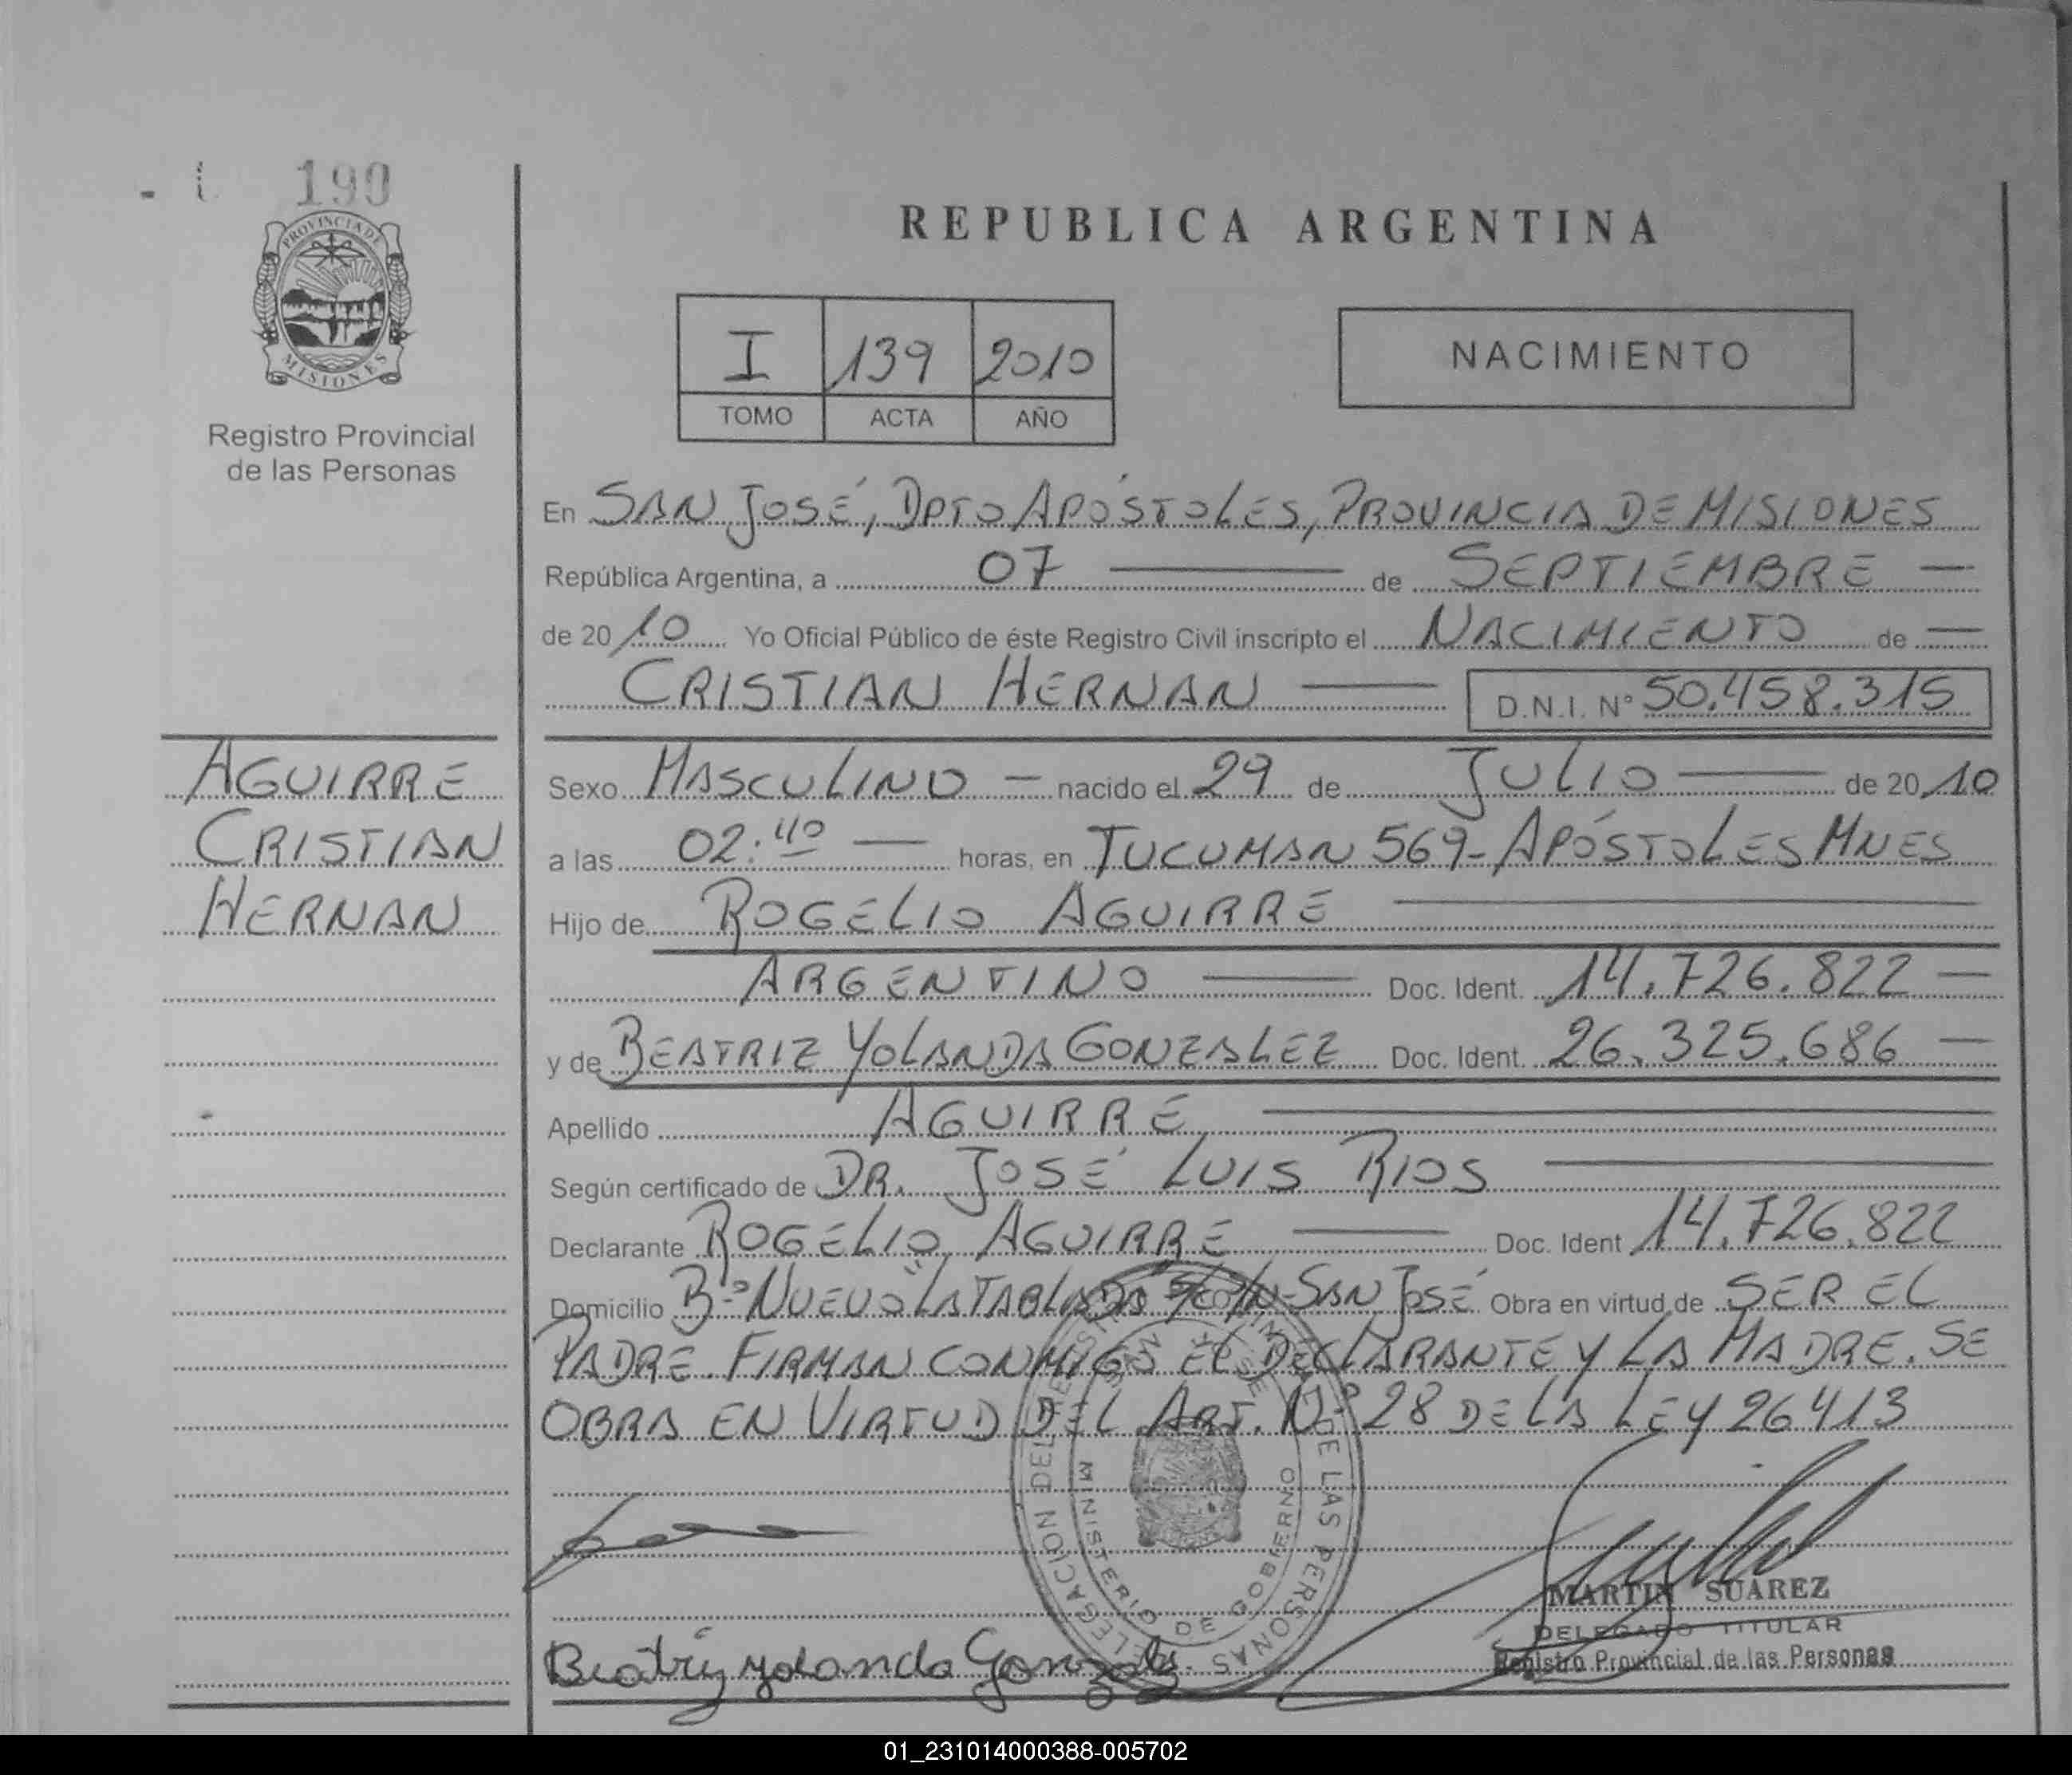 190
PROVINCIA DE
MISIONES
Registro Provincial
de las Personas
REPUBLICA ARGENTINA
I 139 2010
TOMO ACTA AÑO
NACIMIENTO
En SAN JOSÉ, DPTO APÓSTOLES, PROVINCIA DE MISIONES
República Argentina, a 07 — de SEPTIEMBRE —
de 2010 Yo Oficial Público de éste Registro Civil inscripto el NACIMIENTO de —
CRISTIAN HERNAN — D.N.I. N° 50.458.315
AGUIRRE
CRISTIAN
HERNAN
Sexo MASCULINO — nacido el 29 de JULIO — de 2010
a las 02:40 — horas, en TUCUMAN 569-APÓSTOLES MNES
Hijo de ROGELIO AGUIRRE —
ARGENTINO — Doc. Ident. 14.726.822 —
y de BEATRIZ YOLANDA GONZALEZ Doc. Ident. 26.325.686 —
Apellido AGUIRRE —
Según certificado de DR. JOSÉ LUIS RIOS —
Declarante ROGELIO AGUIRRE — Doc. Ident 14.726.822
Domicilio B° NUEVO "LA TABLADA" S/N-SAN JOSÉ Obra en virtud de SER EL
PADRE. FIRMAN CONMIGO EL DECLARANTE Y LA MADRE. SE
OBRA EN VIRTUD DEL ART. N° 28 DE LA LEY 26413
DELEGACION DEL REGISTRO DE LAS PERSONAS
MINISTERIO DE GOBIERNO
SAN JOSE
MARTIN SUAREZ
DELEGADO TITULAR
Registro Provincial de las Personas
Beatriz Yolanda Gonzalez
01_231014000388-005702